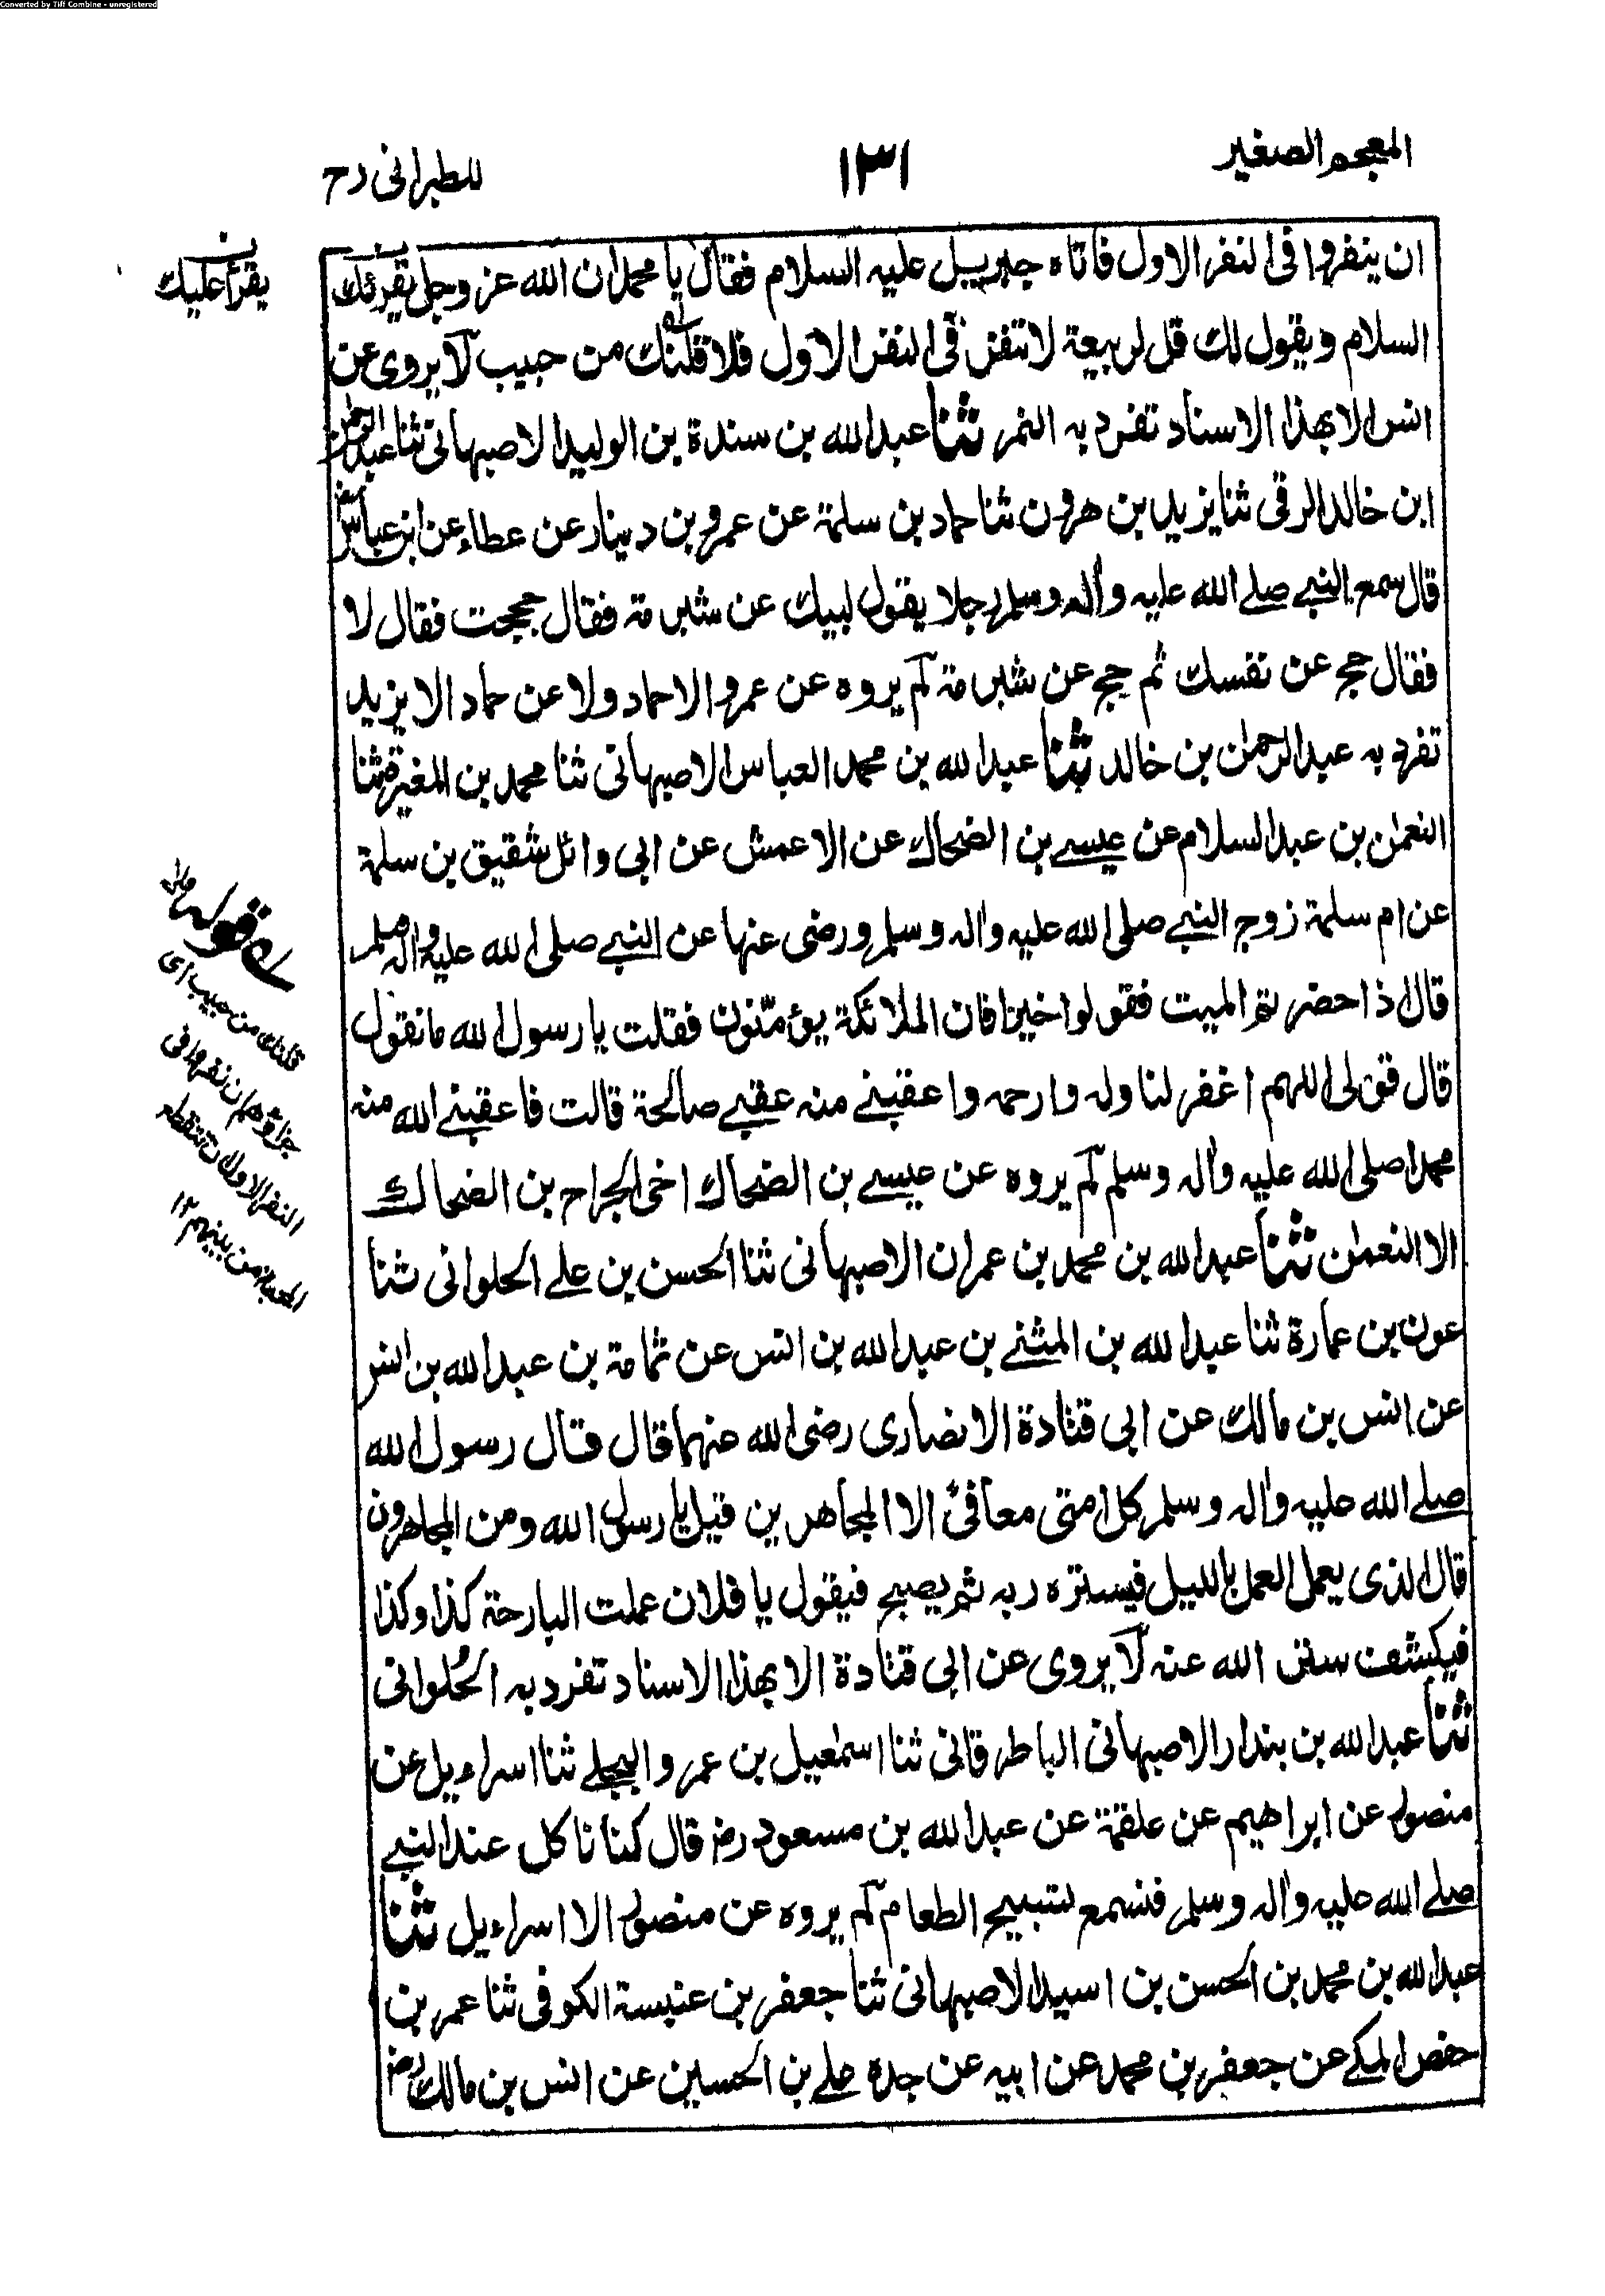 Converted by Tiff Combine - unregistered
المعجم الصغير
١٣١
للطبرانی رح
ان ينفروا فی النفر الاول فاتاه جبريل عليه السلام فقال يا محمد ان الله عز وجل يقرئك
يقرأ عليك
السلام ويقول لك قل لربيعة لا تنفر فی النفر الاول فلا قلتك من حبيب لا يروی عن
انس الا بهذا الاسناد تفرد به النمر ثنا عبد الله بن سندة بن الوليد الاصبهانی ثنا عبد الرحمن
ابن خالد الرقی ثنا يزيد بن هرون ثنا حماد بن سلمة عن عمرو بن دينار عن عطاء عن ابن عباس رض
قال سمع النبے صلے الله عليه واٰله وسلم رجلا يقول لبيك عن شبرمة فقال حججت فقال لا
فقال حج عن نفسك ثم حج عن شبرمة لم يروه عن عمرو الا حماد ولا عن حماد الا يزيد
تفرد به عبد الرحمٰن بن خالد ثنا عبد الله بن محمد العباس الاصبهانی ثنا محمد بن المغيرة ثنا
النعمٰن بن عبد السلام عن عيسے بن الضحاك عن الاعمش عن ابی وائل شقيق بن سلمة
عن ام سلمة زوج النبے صلی الله عليه واٰله وسلم ورضی عنها عن النبے صلی الله عليه واٰله وسلم
قال اذا حضرتم الميت فقولوا خيرا فان الملائكة يؤمّنون فقلت يا رسول الله ما نقول
قال قولی اللهم اغفر لنا وله وارحمه واعقبنے منه عقبے صالحة قالت فاعقبنے الله منه
محمدا صلی الله عليه واٰله وسلم لم يروه عن عيسے بن الضحاك اخی الجراح بن الضحاك
الا النعمٰن ثنا عبد الله بن محمد بن عمران الاصبهانی ثنا الحسن بن علے الحلوانی ثنا
عون بن عمارة ثنا عبد الله بن المثنے بن عبد الله بن انس عن ثمامة بن عبد الله بن انس
عن انس بن مالك عن ابی قتادة الانصاری رضی الله عنهما قال قال رسول الله
صلے الله عليه واٰله وسلم كل امتی معافیً الا المجاهرين قيل يا رسول الله ومن المجاهرون
قال الذی يعمل العمل بالليل فيستره ربه ثم يصبح فيقول يا فلان عملت البارحة كذا وكذا
فيكشف ستر الله عنه لا يروی عن ابی قتادة الا بهذا الاسناد تفرد به الحُلوانی
ثنا عبد الله بن بندار الاصبهانی الباطرقانی ثنا اسمٰعيل بن عمرو البجلے ثنا اسراءيل عن
منصور عن ابراهيم عن علقمة عن عبد الله بن مسعود رض قال كنا ناكل عند النبے
صلے الله عليه واٰله وسلم فنسمع تسبيح الطعام لم يروه عن منصور الا اسراءيل ثنا
عبد الله بن محمد بن الحسن بن اسيد الاصبهانی ثنا جعفر بن عنبسة الكوفی ثنا عمر بن
حفص المكے عن جعفر بن محمد عن ابيه عن جده علے بن الحسين عن انس بن مالك رض
قوله
قلتك من حبيب ای
ان نفروا فی
النفر الاول
من بينهم ١٢